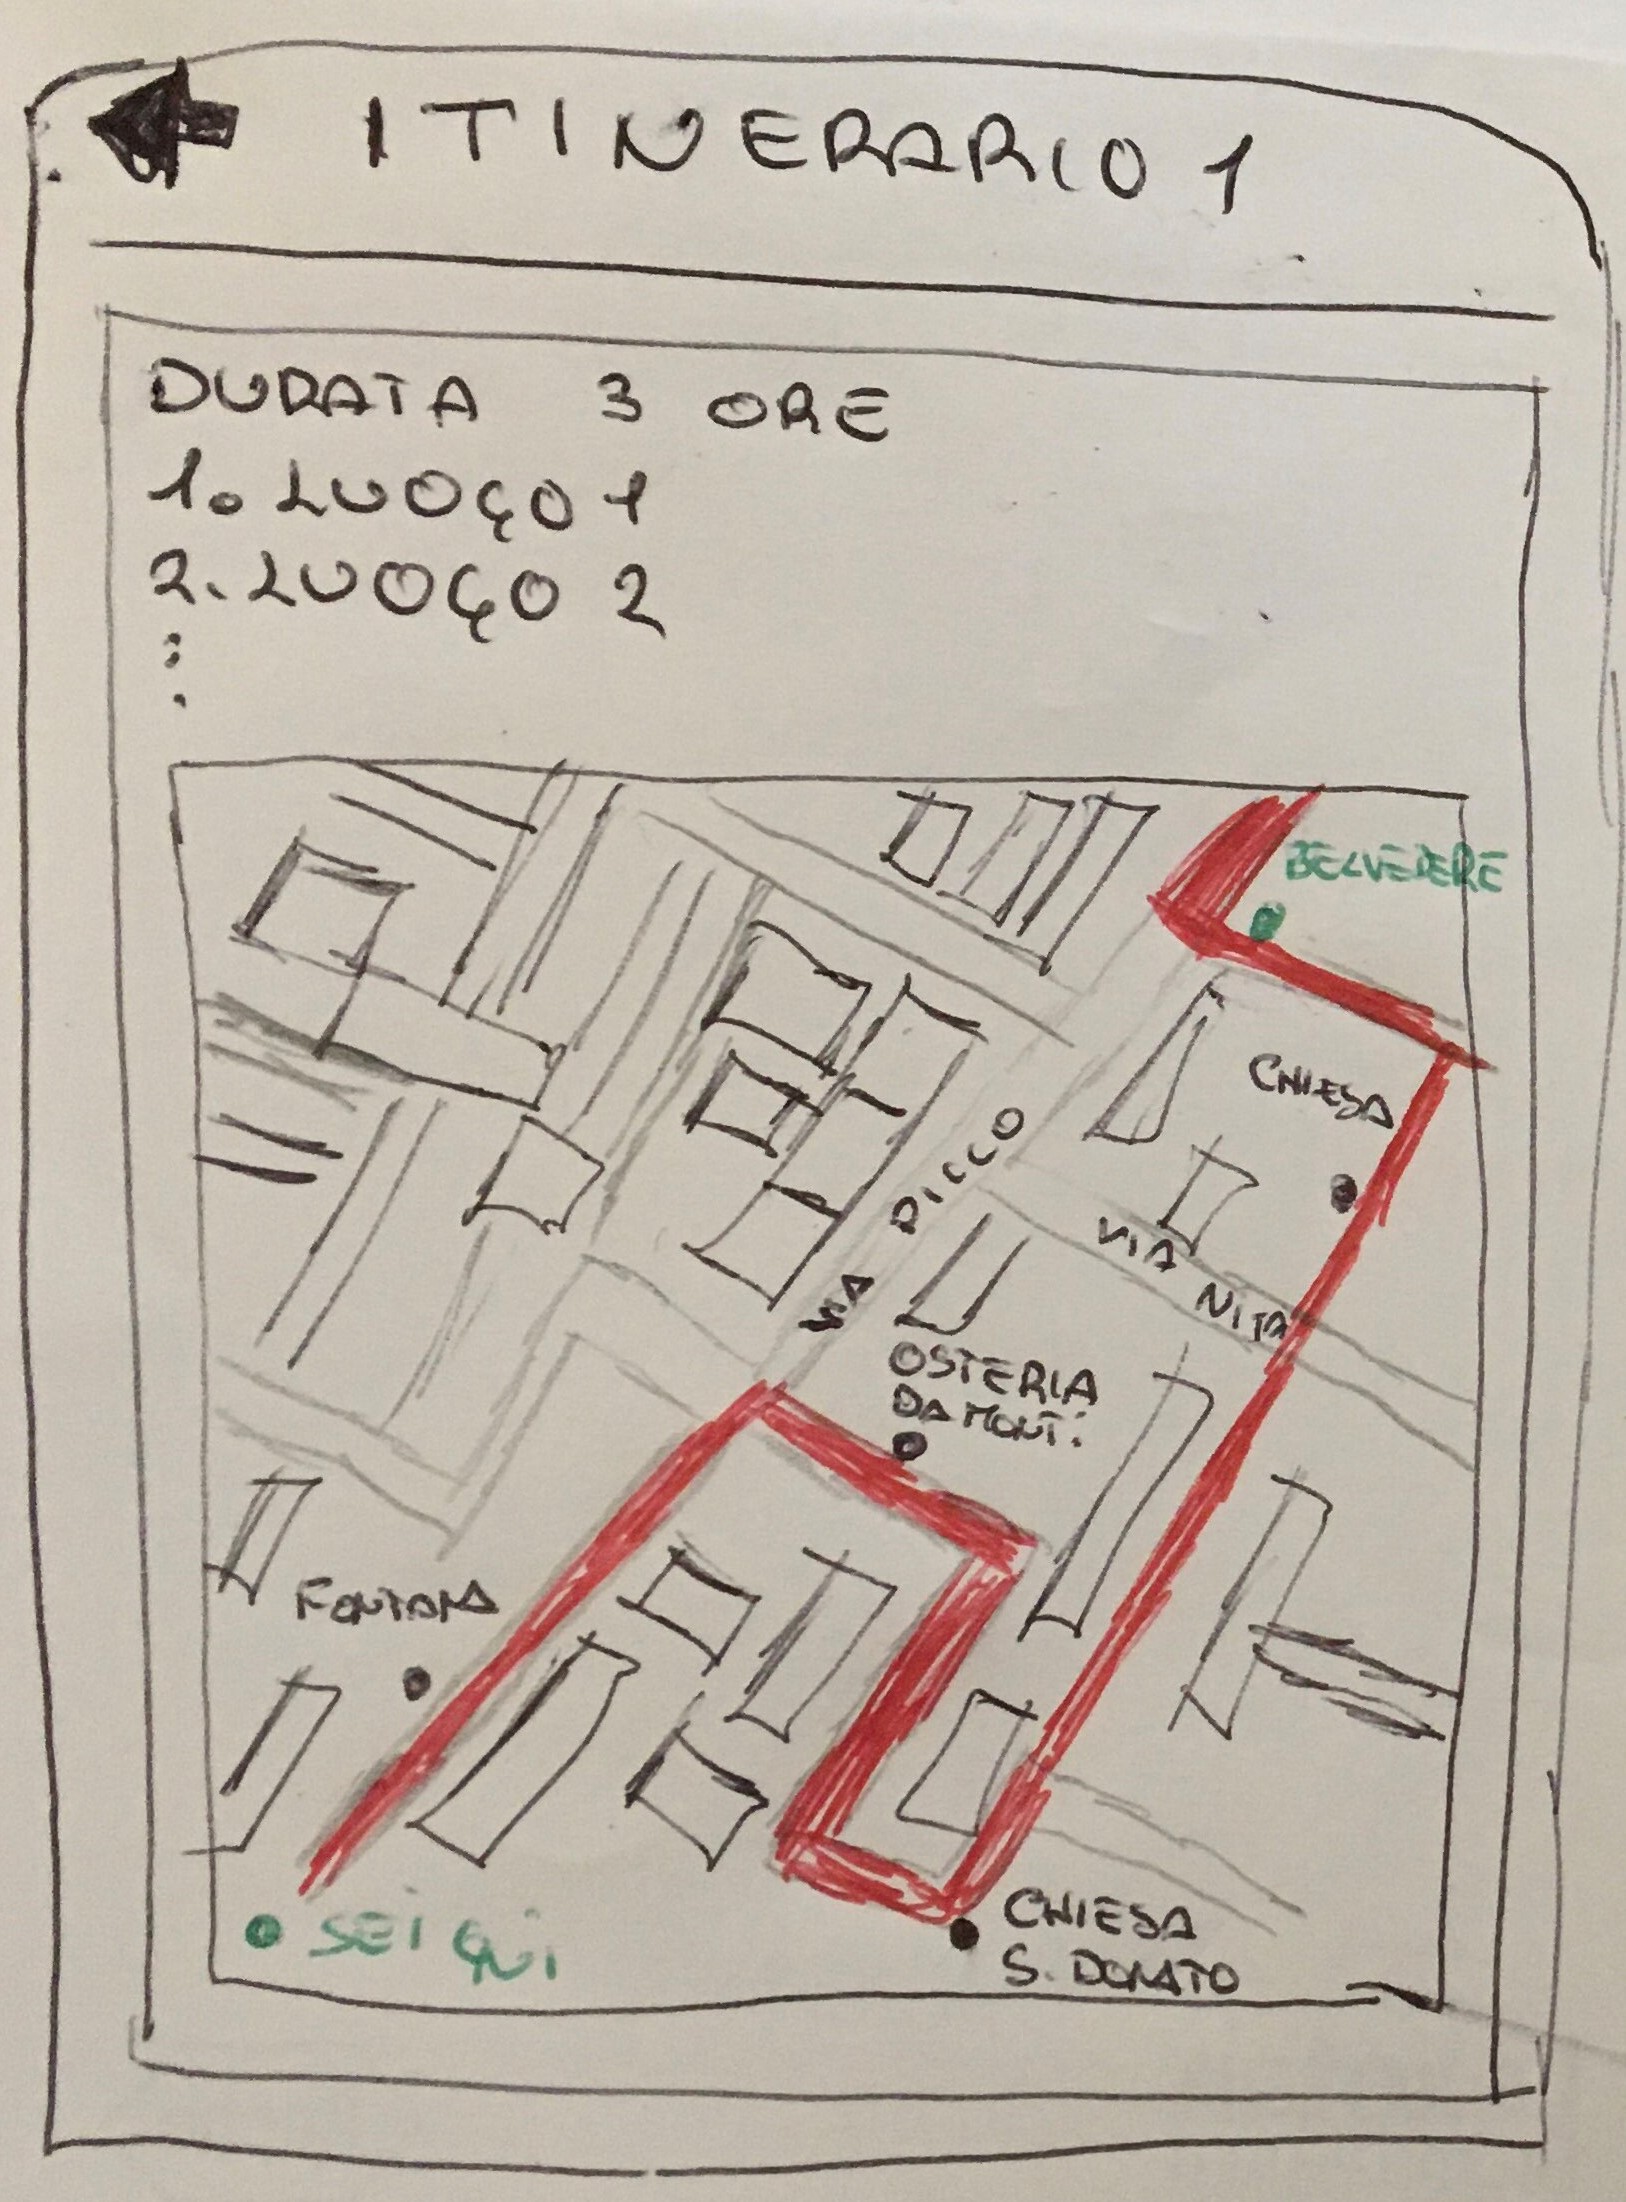 ITINERARIO 1
DURATA 3 ORE
1. LUOGO 1
2. LUOGO 2
BELVEDERE
CHIESA
VIA
VIA NITA
OSTERIA
DA MONTI
FONTANA
SEI QUI
CHIESA
S. DONATO